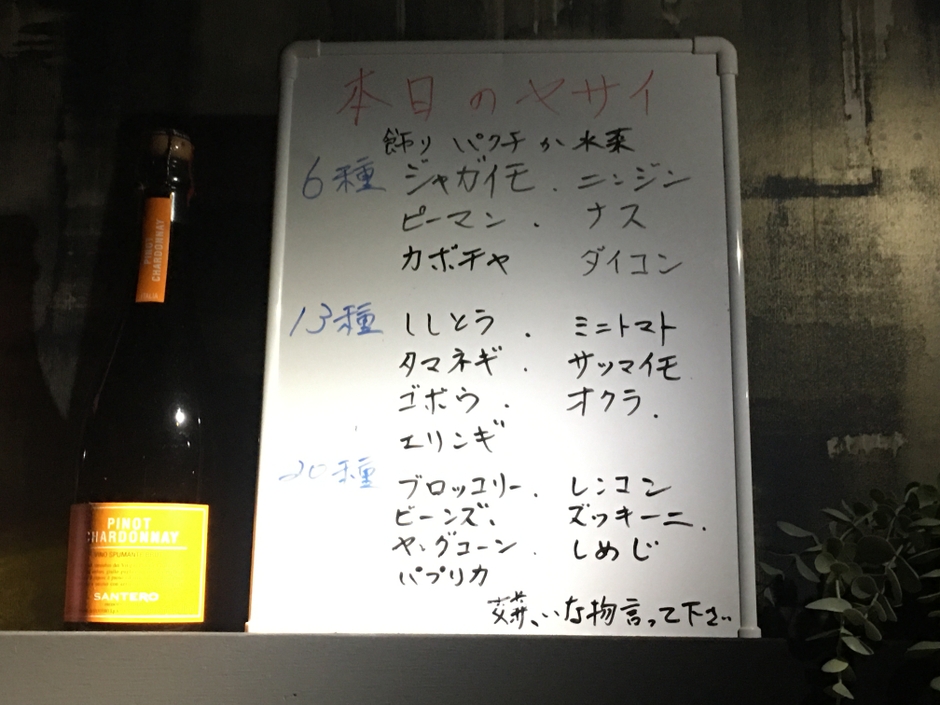 本日のヤサイ
飾り パクチ か 水菜
6種 ジャガイモ . ニンジン
ピーマン . ナス
カボチャ ダイコン
13種 ししとう . ミニトマト
タマネギ . サツマイモ
ゴボウ . オクラ.
エリンギ
20種 ブロッコリー. レンコン
ビーンズ. ズッキーニ.
ヤングコーン . しめじ
パプリカ
嫌いな物言って下さい
PINOT
CHARDONNAY
PINOT
CHARDONNAY
VINO SPUMANTE
SANTERO